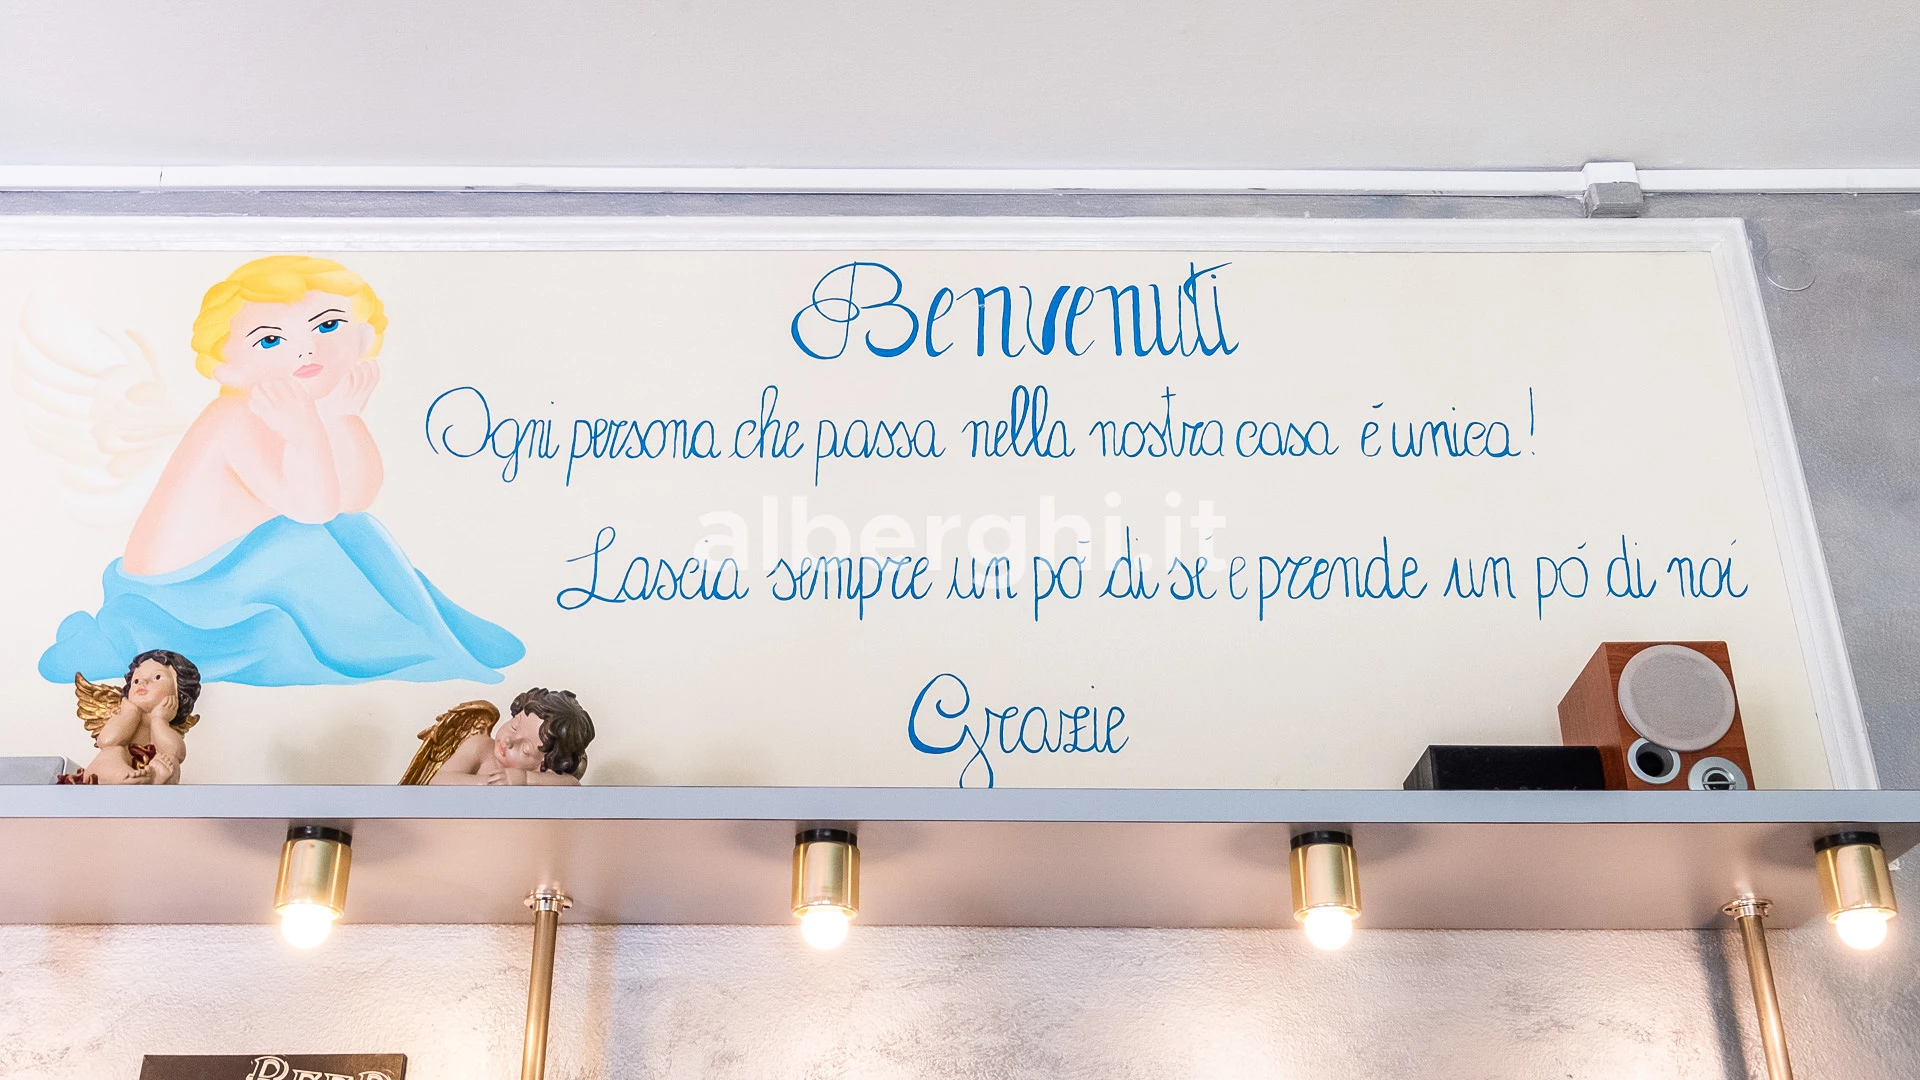 Benvenuti
Ogni persona che passa nella nostra casa é unica!
alberghi.it
Lascia sempre un pó di sé e prende un pó di noi
Grazie
BEER